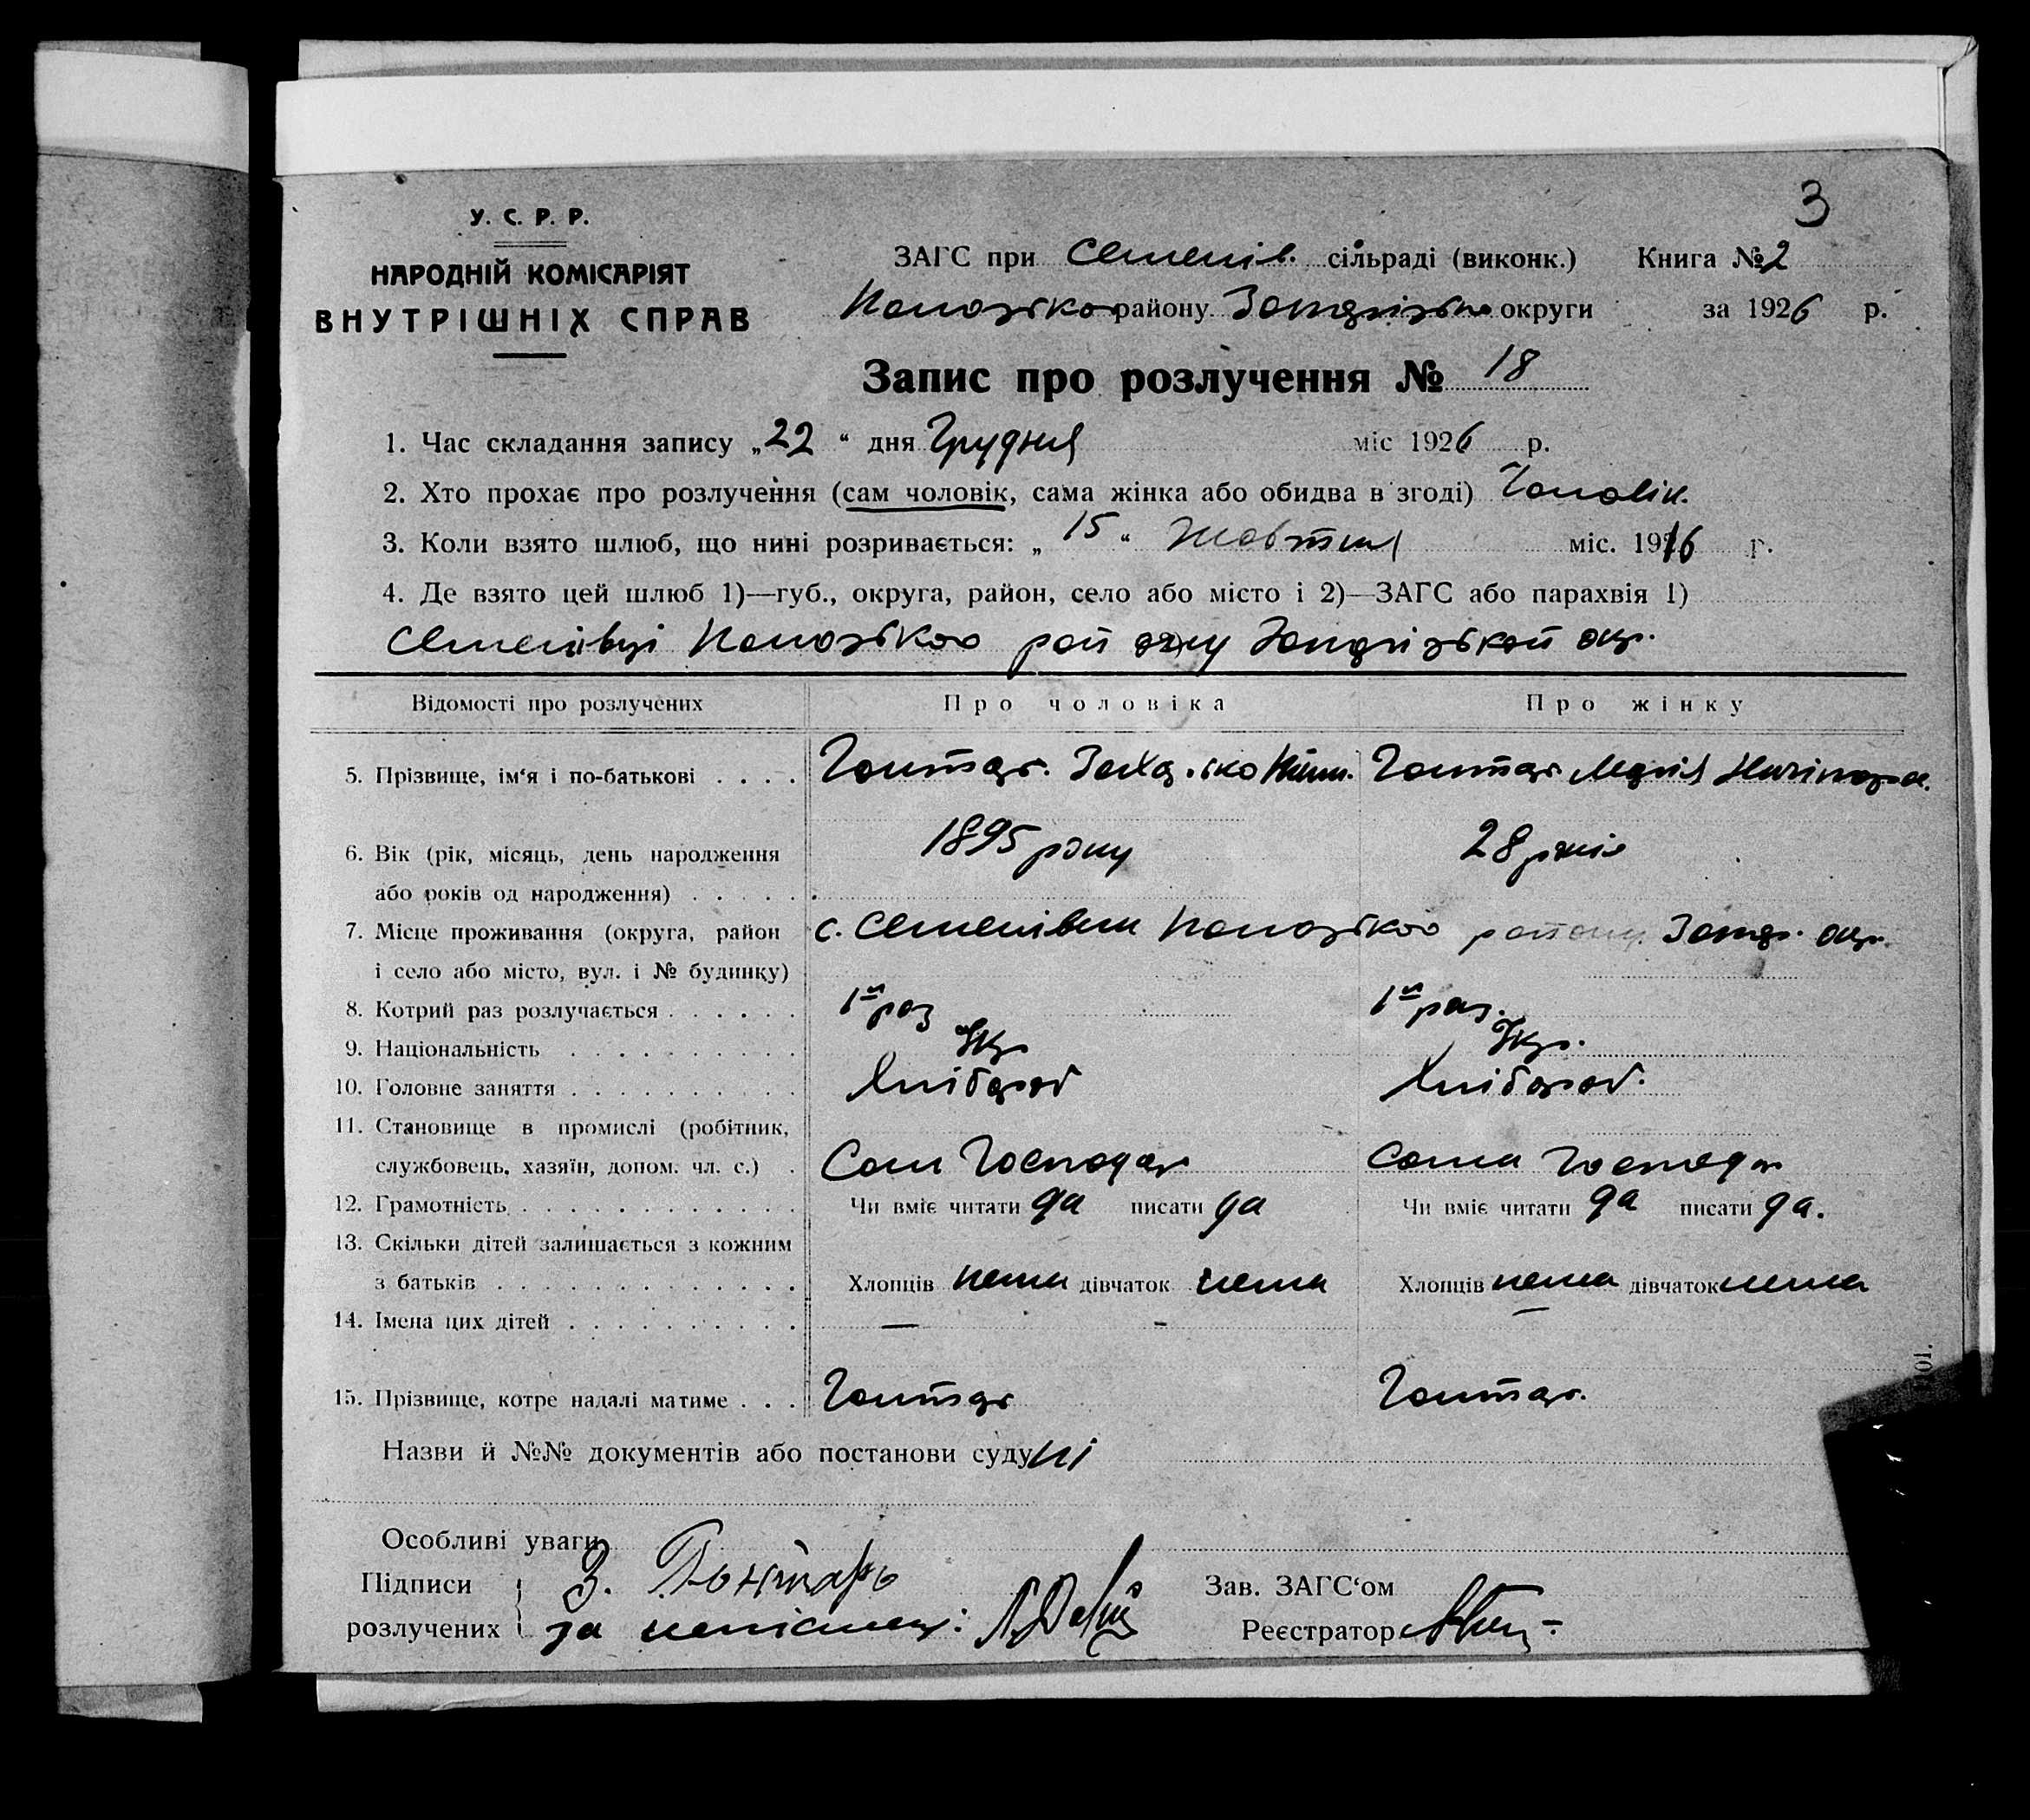 3
У. С. Р. Р.
НАРОДНІЙ КОМІСАРІЯТ
ВНУТРІШНІХ СПРАВ
ЗАГС при Семенів. сільраді (виконк.) Книга № 2
району округи за 1926 р.
Запис про розлучення № 18
1. Час складання запису „22“ дня Грудня міс 1926 р.
2. Хто прохає про розлучення (сам чоловік, сама жінка або обидва в згоді) Чоловік.
3. Коли взято шлюб, що нині розривається: „15“ Жовтня міс. 1916 р.
4. Де взято цей шлюб 1)—губ., округа, район, село або місто і 2)—ЗАГС або парахвія 1)
Семенівці району окр.
Відомості про розлучених Про чоловіка Про жінку
5. Прізвище, ім‘я і по-батькові . . . . Гонтар. Гонтар Марія
6. Вік (рік, місяць, день народження 1895 року 28 років
або років од народження) . . . . .
7. Місце проживання (округа, район с. Семенівки району окр.
і село або місто, вул. і № будинку)
8. Котрий раз розлучається . . . . . . 1й раз 1й раз.
9. Національність . . . . . . . . . . Укр Укр.
10. Головне заняття . . . . . . . . . . Хлібороб Хлібороб.
11. Становище в промислі (робітник,
службовець, хазяїн, допом. чл. с.) . Сам Господар Сама Господар
12. Грамотність . . . . . . . . . . . . Чи вміє читати да писати да Чи вміє читати да писати да.
13. Скільки дітей залишається з кожним
з батьків . . . . . . . . . . . . . Хлопців нема дівчаток нема Хлопців нема дівчаток нема
14. Імена цих дітей . . . . . . . . . . — - —
15. Прізвище, котре надалі матиме . . . Гонтар Гонтар.
Назви й №№ документів або постанови суду ні
Особливі уваги
Підписи З. Гонтарь Зав. ЗАГС‘ом
розлучених за Реєстратор